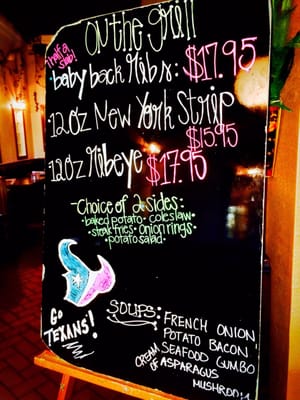 On the grill
half a slab!
baby back Ribs: $17.95
12oz New York Strip
$15.95
12oz Ribeye $17.95
-Choice of 2 sides:
baked potato · coleslaw
steak fries · onion rings ·
· potato salad ·
GO
TEXANS!
SOUPS: FRENCH ONION
POTATO BACON
SEAFOOD GUMBO
CREAM OF ASPARAGUS
MUSHROOM